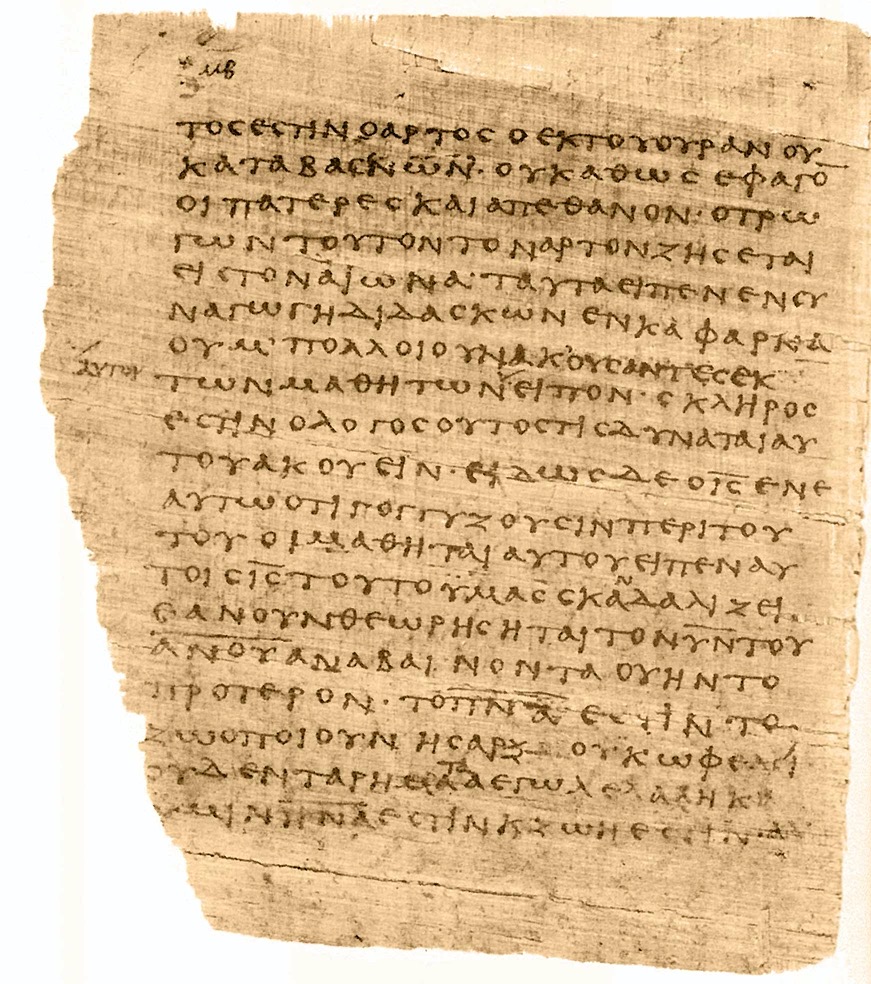 μβ
ΤΟCΕCΤΙΝΟΑΡΤΟCΟΕΚΤΟΥΟΥΡΑΝΟΥ
ΟΥΚΑΘΩCΕΦΑΓΟ̅
ΟΙΠΑΤΕΡΕCΚΑΙΑΠΕΘΑΝΟΝ·ΟΤΡΩ
ΓΩΝΤΟΥΤΟΝΤΟΝΑΡΤΟΝΖΗCΕΤΑΙ
ΕΙCΤΟΝΑΙΩΝΑ·ΤΑΥΤΑΕΙΠΕΝΕΝCΥ
ΝΑΓΩΓΗΔΙΔΑCΚΩΝΕΝΚΑΦΑΡΝΑ
ΟΥΜ·ΠΟΛΛΟΙΟΥΝΑΚΟΥCΑΝΤΕCΕΚ
ΑΥΤΟΥ
ΤΩΝΜΑΘΗΤΩΝΕΙΠΟΝ·CΚΛΗΡΟC
ΕCΤΙΝΟΛΟΓΟCΟΥΤΟCΤΙCΔΥΝΑΤΑΙΑΥ
ΤΟΥΑΚΟΥΕΙΝ·ΕΙΔΩCΔΕΟΙ̅C̅ΕΝΕ
ΑΥΤΩΟΤΙΓΟΓΓΥΖΟΥCΙΝΠΕΡΙΤΟΥ
ΤΟΥΟΙΜΑΘΗΤΑΙΑΥΤΟΥΕΙΠΕΝΑΥ
ΤΟΙCΙ̅C̅ΤΟΥΤΟΫΜΑCCΚΑΝΔΑΛΙΖΕΙ
ΕΑΝΟΥΝΘΕΩΡΗCΗΤΑΙΤΟΝΥ̅Ν̅ΤΟΥ
Α̅Ν̅Ο̅Υ̅ΑΝΑΒΑΙΝΟΝΤΑΟΥΗΝΤΟ
ΠΡΟΤΕΡΟΝ·ΤΟΠ̅Ν̅Α̅ΕCΤΙΝΤΟ
ΖΩΟΠΟΙΟΥΝΗCΑΡΞΟΥΚΩΦΕΛΕΙ
ΟΥΔΕΝΤΑΡΗΜΑΤΑΑΕΓΩΛΕΛΑΛΗΚΑ
ΥΜΙΝΠ̅Ν̅Α̅ΕCΤΙΝΚΖΩΗΕCΤΙΝ·ΑΛ